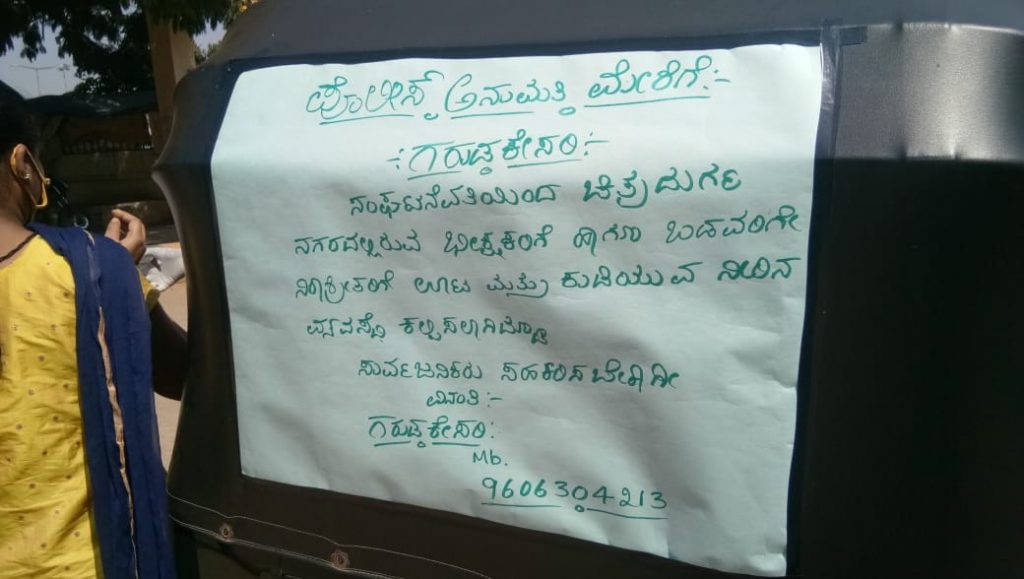 ಪೊಲೀಸ್ ಅನುಮತಿ ಮೇರೆಗೆ:-
-:ಗರುಡಕೇಸರಿ:-
ಸಂಘಟನೆವತಿಯಿಂದ ಚಿತ್ರದುರ್ಗ
ನಗರದಲ್ಲಿರುವ ಭೀಕ್ಷಕರಿಗೆ ಹಾಗೂ ಬಡವರಿಗೇ
ನಿರಾಶ್ರೀತರಿಗೆ ಊಟ ಮತ್ತು ಕುಡಿಯುವ ನೀರಿನ
ವ್ಯವಸ್ಥೆ ಕಲ್ಪಿಸಲಾಗಿದ್ದು
ಸಾರ್ವಜನಿಕರು ಸಹಕರಿಸಬೇಕಾಗೀ
ವಿನಂತಿ:-
ಗರುಡಕೇಸರಿ:
Mb.
9606304213